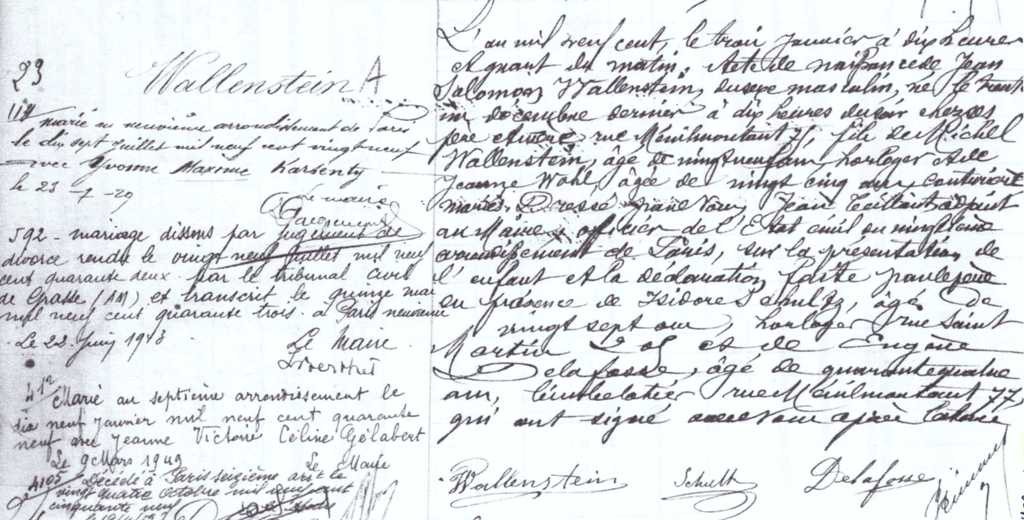 23
Wallenstein A
marié au neuvième arrondissement de Paris
le dix sept Juillet mil neuf cent vingt neuf
avec Yvonne Maxime Karsenty
le 23-7-29
Le maire
592 - mariage dissous par Jugement de
divorce rendu le vingt neuf Juillet mil neuf
cent quarante deux par le tribunal civil
de Grasse (AM) et transcrit le quinze mai
mil neuf cent quarante trois à Paris neuvième
Le 23 Juin 1943
Le Maire
412
Marié au septième arrondissement le
dix neuf janvier mil neuf cent quarante
neuf avec Jeanne Victoire Céline Gélabert
Le 9 Mars 1949 Le Maire
4105 Décédé à Paris seizième arrt le
vingt quatre octobre mil neuf cent
cinquante neuf
L'an mil neuf cent, le trois Janvier à dix heures
et quart du matin. Acte de naissance de Jean
Salomon Wallenstein, du sexe masculin, né le trente
un décembre dernier à dix heures du soir chez ses
père et mère rue Ménilmontant 75, fils de Michel
Wallenstein, âgé de vingt neuf ans, horloger et de
Jeanne Wohl, âgée de vingt cinq ans, couturière
mariés. Dressé par Nous, Jean Taillant, adjoint
au Maire, officier de l'Etat civil du vingtième
arrondissement de Paris, sur la présentation de
l'enfant et la déclaration faite par le père
en présence de Isidore Schultz, âgé de
vingt sept ans, horloger rue Saint
Martin et de Eugène
Delafosse, âgé de quarante quatre
ans, rue Ménilmontant 77,
qui ont signé avec Nous après lecture
Wallenstein Schultz Delafosse